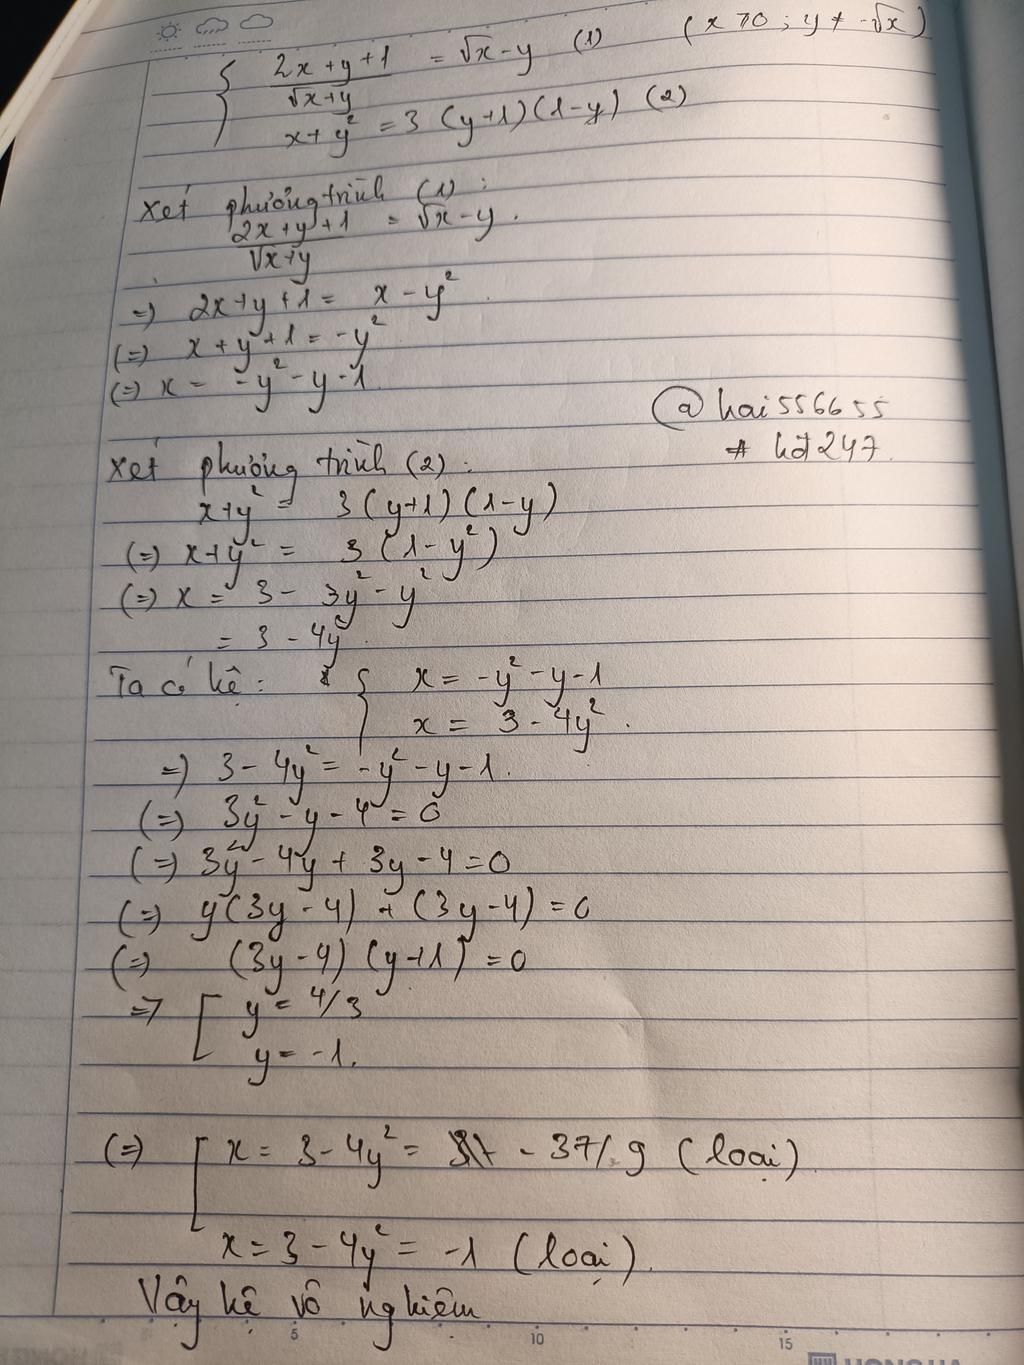 { (2x+y+1)/(√x+y) = √x-y (1) (x≥0; y≠-√x)
x+y² = 3(y+1)(1-y) (2)
Xét phương trình (1):
(2x+y+1)/(√x+y) = √x-y.
=) 2x+y+1 = x-y²
(=) x+y+1 = -y²
(=) x = -y²-y-1
@hai556655
# hđ247
Xét phương trình (2):
x+y² = 3(y+1)(1-y)
(=) x+y² = 3(1-y²)
(=) x = 3 - 3y² - y²
= 3 - 4y²
Ta có hệ: { x = -y²-y-1
x = 3 - 4y².
=) 3 - 4y² = -y²-y-1.
(=) 3y² - y - 4 = 0
(=) 3y² - 4y + 3y - 4 = 0
(=) y(3y-4) + (3y-4) = 0
(=) (3y-4)(y+1) = 0
=> [ y = 4/3
y = -1.
(=) [ x = 3 - 4y² = -37/9 (loại).
x = 3 - 4y² = -1 (loại).
Vậy hệ vô nghiệm
5 10 15
HONG HA